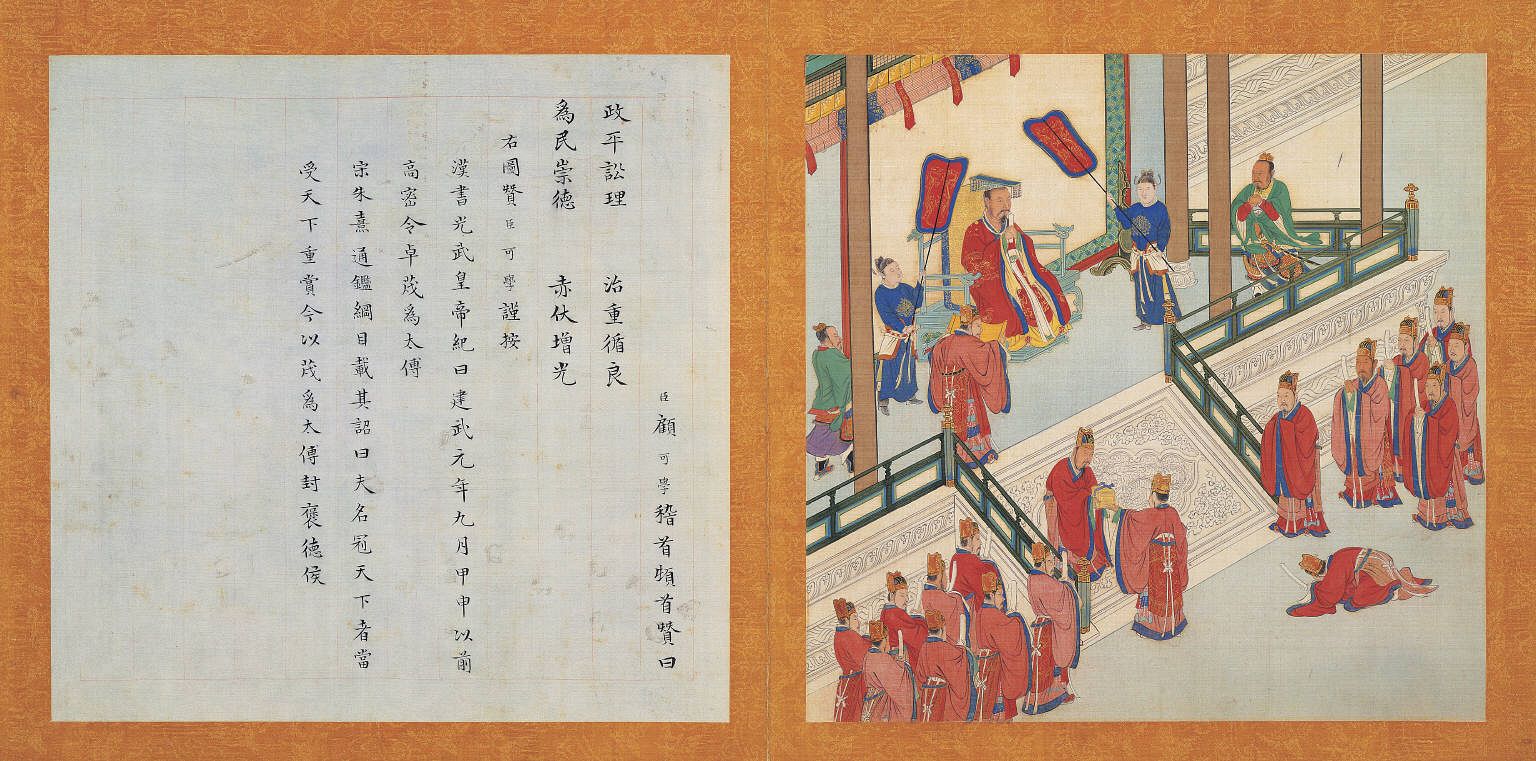 臣顧可學稽首頓首賛曰
政平訟理 治重循良
為民崇德 赤伏增光
右圖賛臣可學謹按
漢書光武皇帝紀曰建武元年九月甲申以前
高密令卓茂為太傅
宋朱熹通鑑綱目載其詔曰夫名冠天下者當
受天下重賞今以茂為太傅封褒德侯